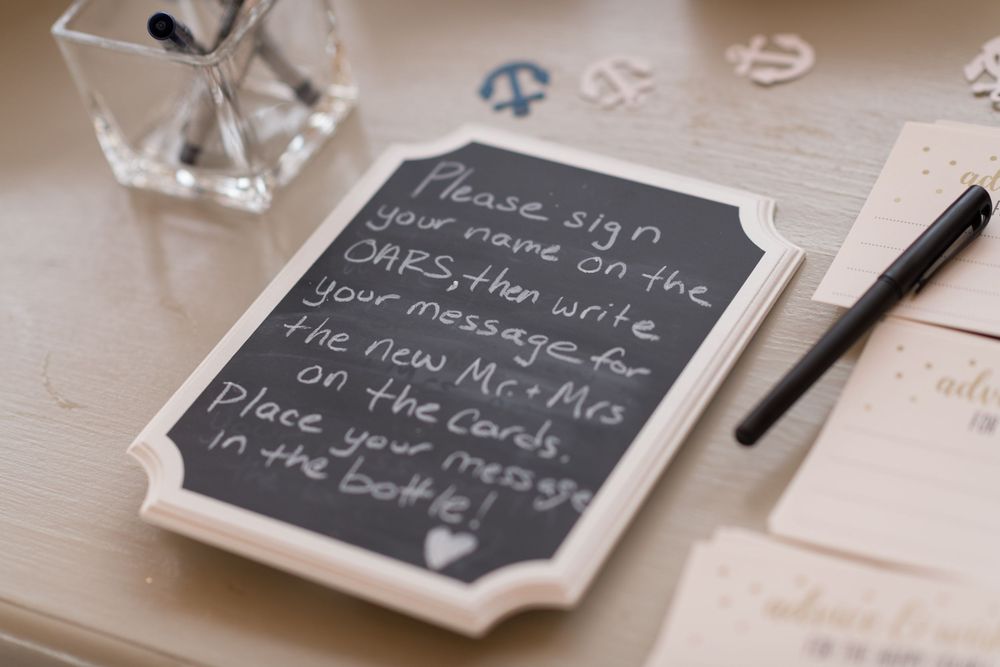 Please sign
your name on the
OARS, then write
your message for
the new Mr. + Mrs
on the Cards.
Place your message
in the bottle!
adv
FOR
advice &
FOR THE